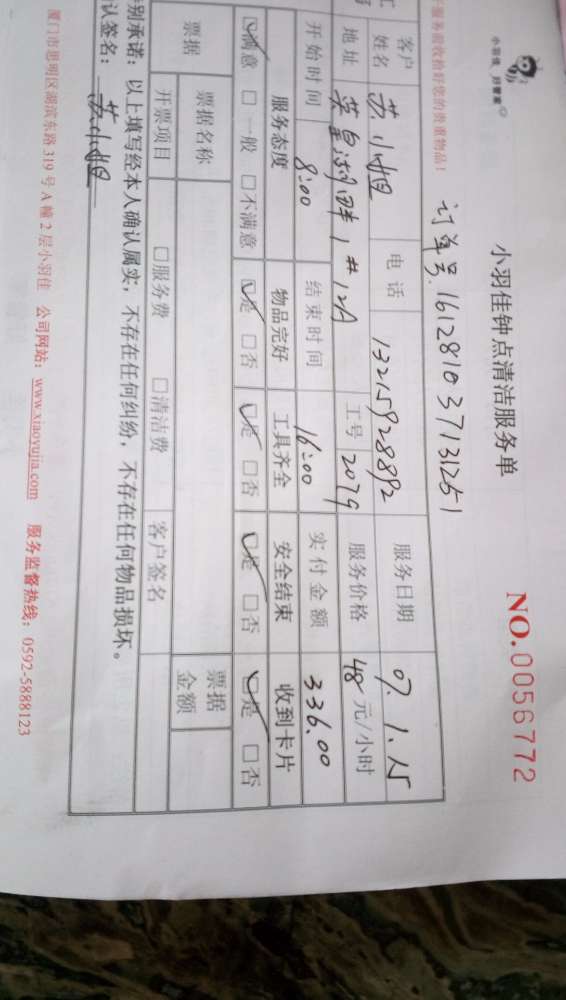 小羽佳 好管家
小羽佳钟点清洁服务单
NO.0056772
服务前收拾好您的贵重物品！
订单号161281037131251
客户姓名 苏小姐 电话 13215928892 服务日期 07.1.15
地址 1#12A 工号 2079 服务价格 48元/小时
开始时间 8:00 结束时间 16:00 实付金额 336.00
服务态度 物品完好 工具齐全 安全结束 收到卡片
☑满意 □一般 □不满意 ☑是 □否 ☑是 □否 ☑是 □否 ☑是 □否
票据 票据名称 票据金额
开票项目 □服务费 □清洁费 客户签名
别承诺：以上填写经本人确认属实，不存在任何纠纷，不存在任何物品损坏。
认签名：苏小姐
厦门市思明区湖滨东路319号A幢2层小羽佳 公司网站：www.xiaoyujia.com 服务监督热线：0592-5888123